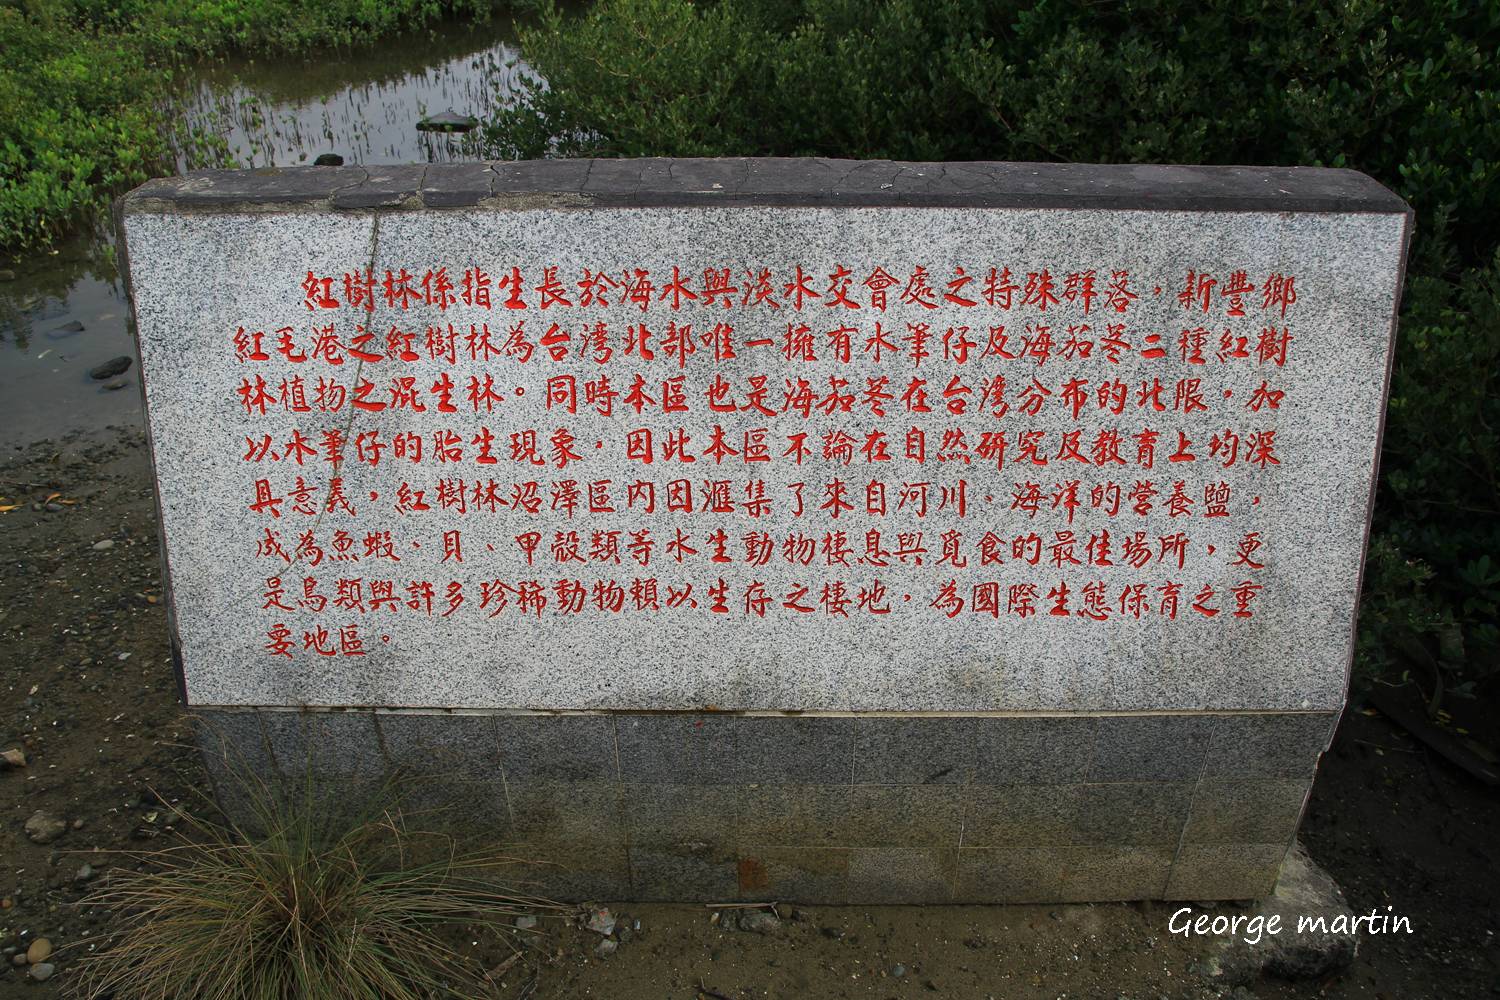 紅樹林係指生長於海水與淡水交會處之特殊群落，新豐鄉
紅毛港之紅樹林為台灣北部唯一擁有水筆仔及海茄苳二種紅樹
林植物之混生林。同時本區也是海茄苳在台灣分布的北限，加
以水筆仔的胎生現象，因此本區不論在自然研究及教育上均深
具意義，紅樹林沼澤區內因滙集了來自河川、海洋的營養鹽，
成為魚蝦、貝、甲殼類等水生動物棲息與覓食的最佳場所，更
是鳥類與許多珍稀動物賴以生存之棲地，為國際生態保育之重
要地區。
George martin